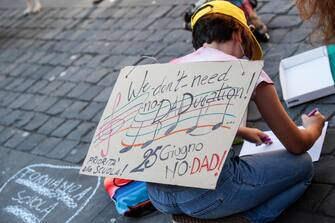 We don't need
no DDucation!
PRIORITÀ
alla SCUOLA
25 Giugno
NO-DAD!